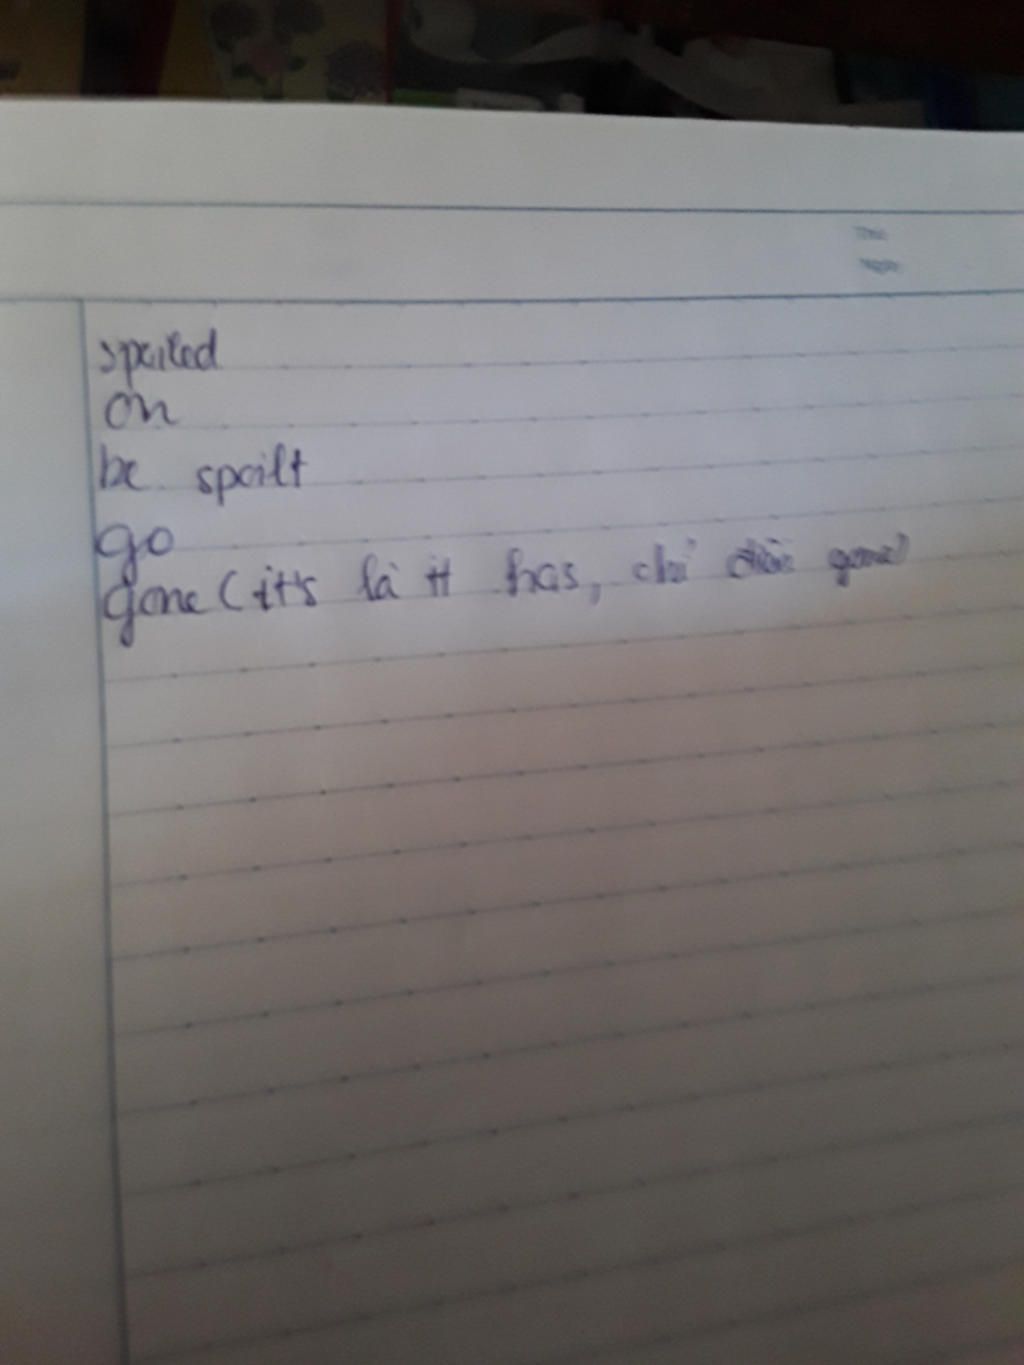 Thứ
Ngày
spoiled
on
be spoilt
go
gone (it's là it has, chỉ gone)